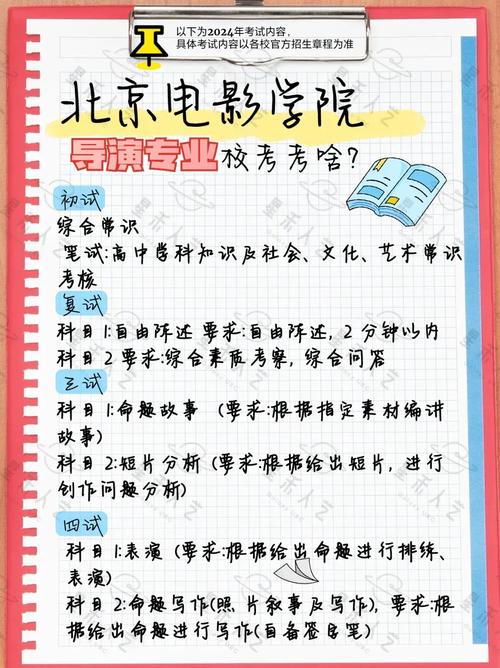 以下为2024年考试内容，
具体考试内容以各校官方招生章程为准
北京电影学院
导演专业校考考啥？
初试
综合常识
笔试:高中学科知识及社会、文化、艺术常识
考核
复试
科目1:自由陈述 要求:自由陈述，2分钟以内
科目2要求:综合素质考察，综合问答
三试
科目1:命题故事 （要求:根据指定素材编讲
故事)
科目2:短片分析(要求:根据给出短片，进行
创作问题分析)
四试
科目1:表演（要求:根据给出命题进行排练、
表演)
科目2:命题写作(照片叙事及写作)，要求:根
据给出命题进行写作(自备签字笔)
星禾人艺